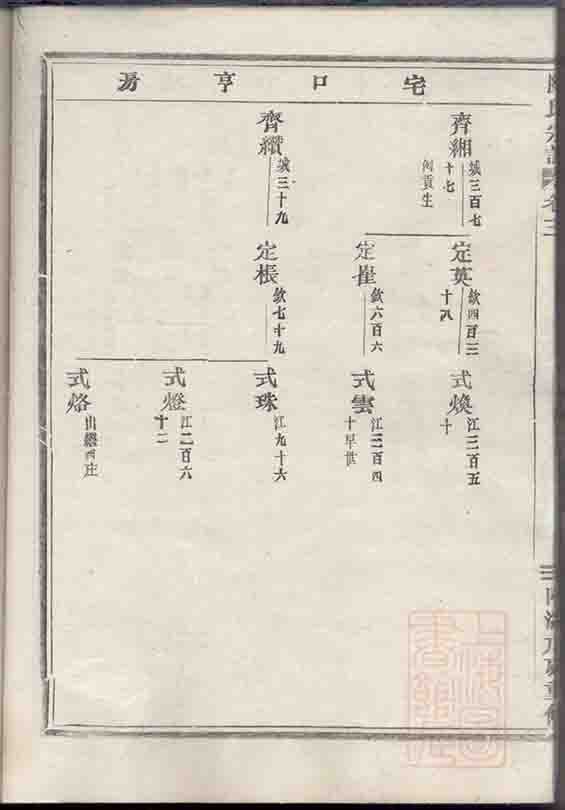 宅口亨房
齊緗
城三百七
十七
例貢生
齊纘
城三十九
定英
欽四百三
十八
定崔
欽六百六
定棖
欽七十九
式煥
江三百五
十
式雲
江三百四
十早世
式珠
江九十六
式燈
江二百六
十二
式烙
出繼西庄
氏宗譜
卷三
三
上海圖
書館藏